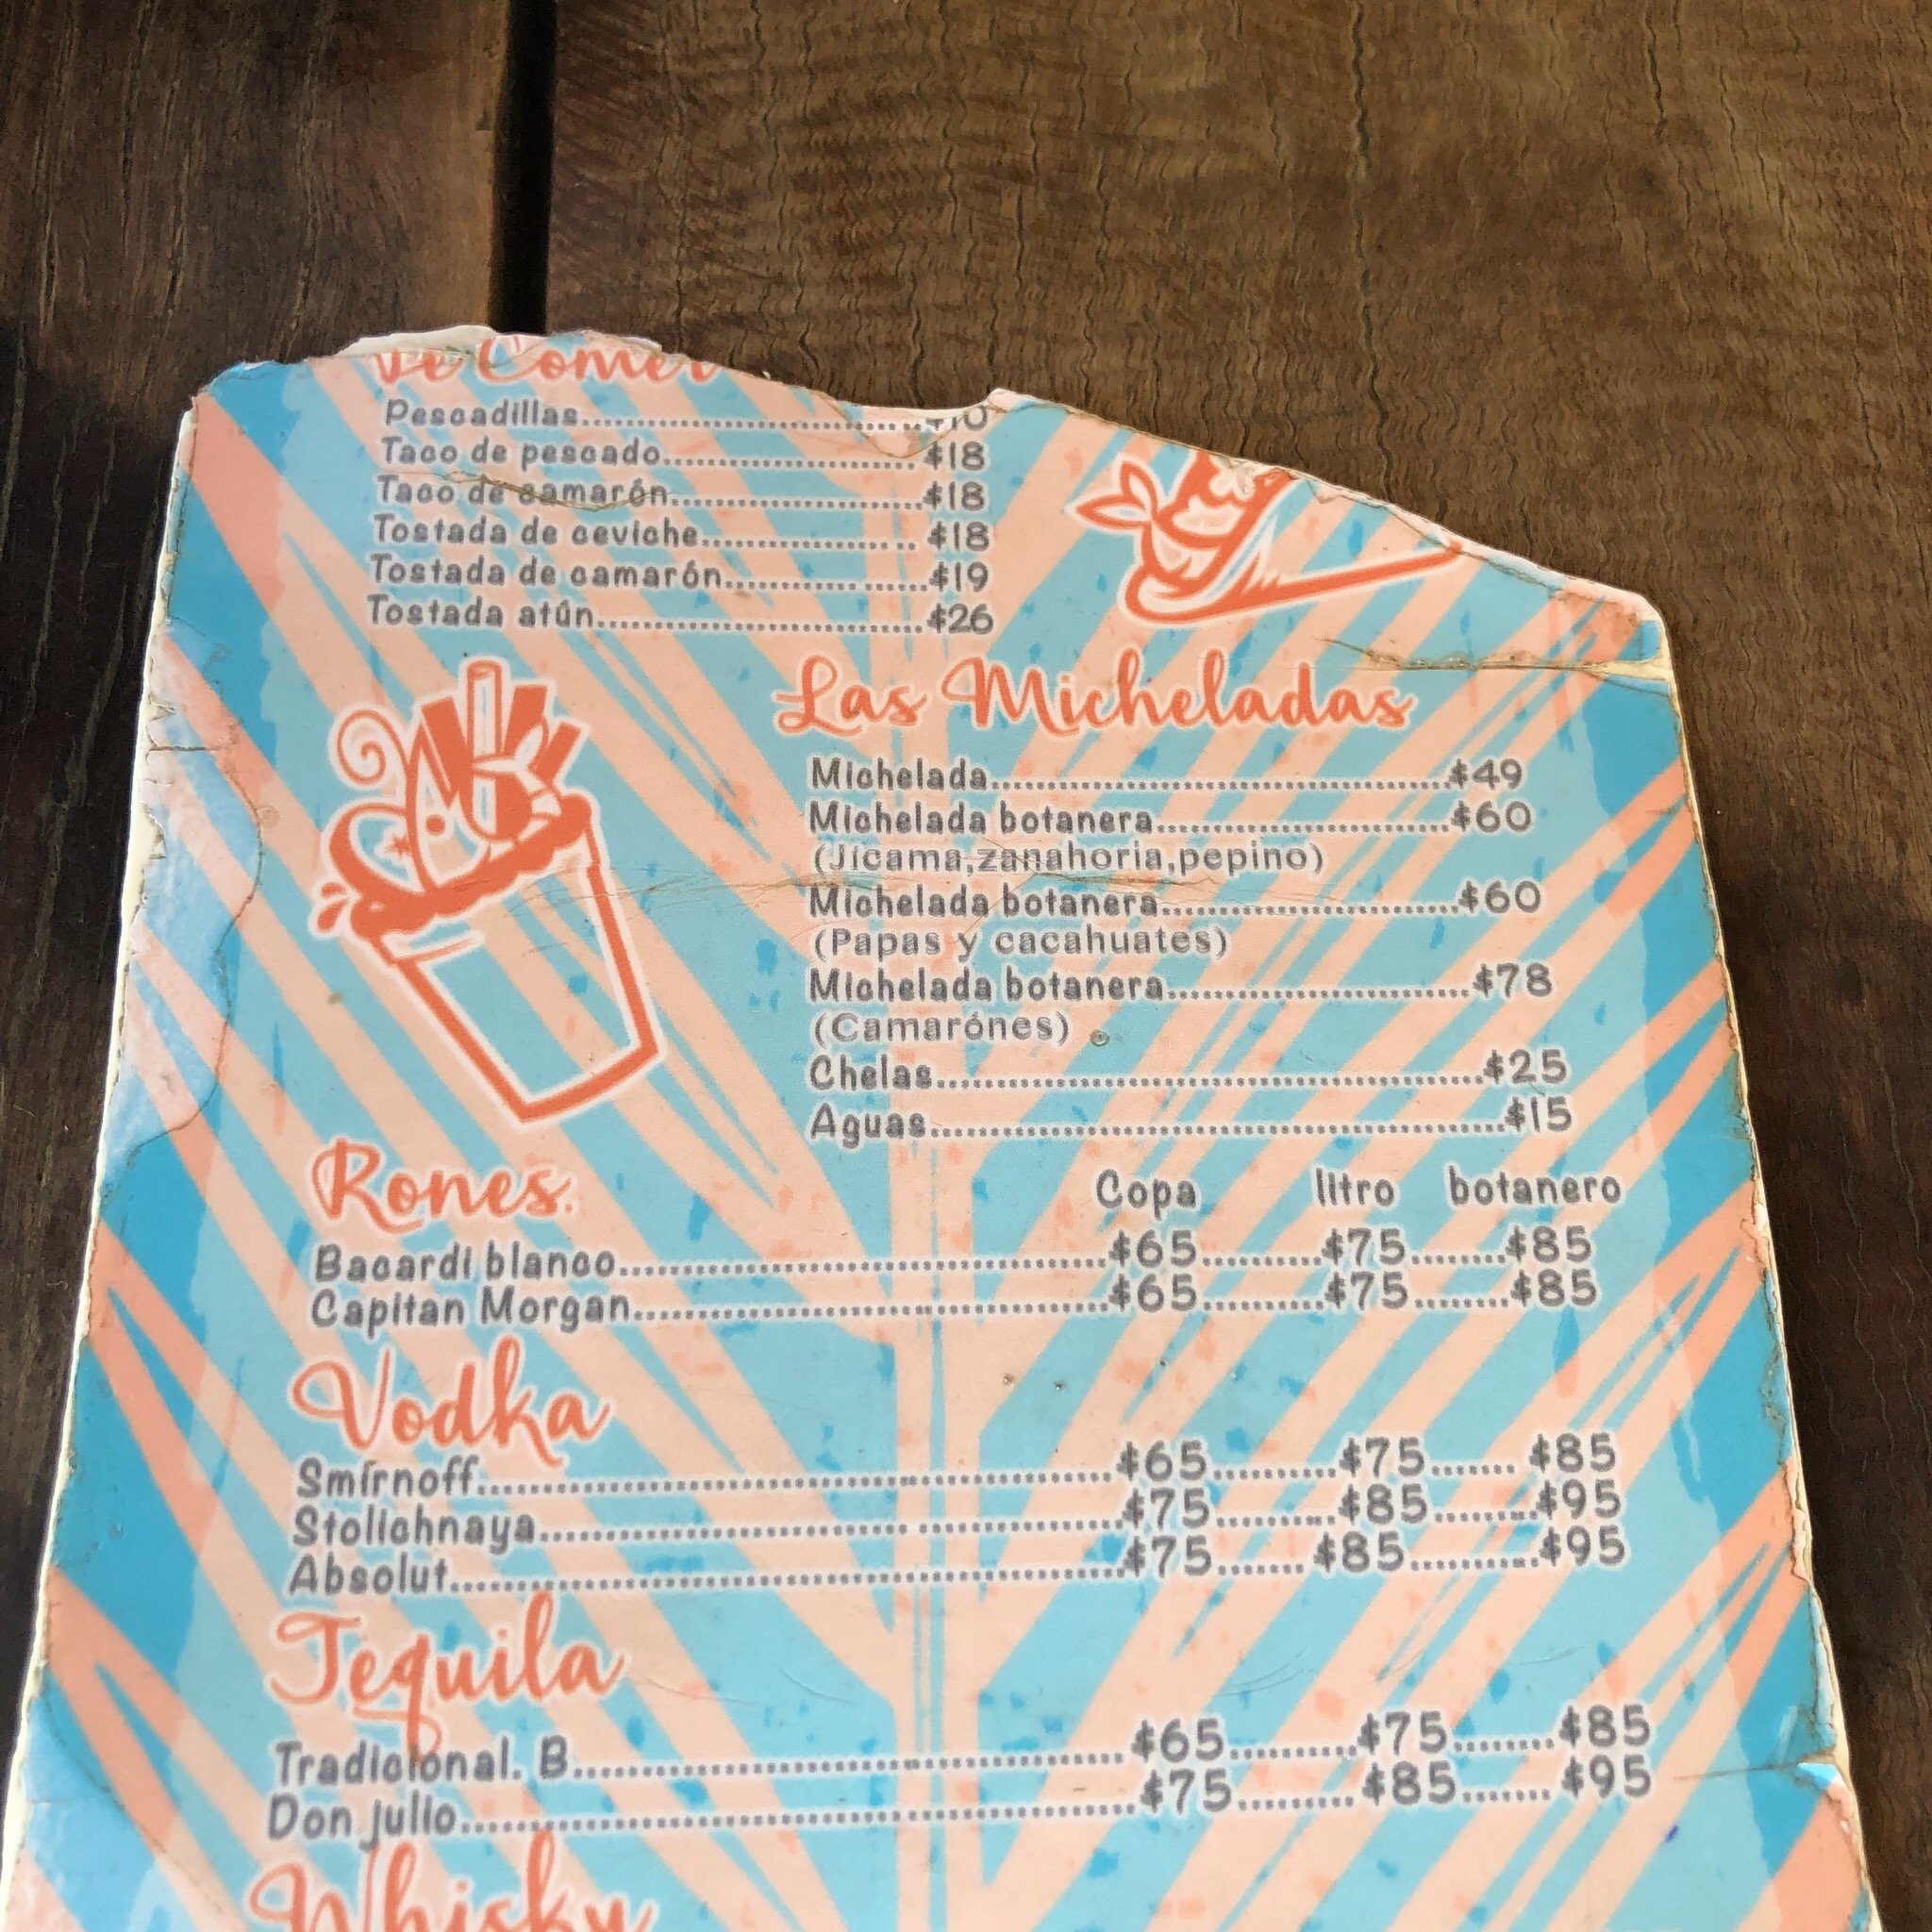 De Comer
Pescadillas.....................................$10
Taco de pescado............................. $18
Taco de camarón.............................$18
Tostada de ceviche......................... $18
Tostada de camarón.......................$19
Tostada atún...................................$26
Las Micheladas
Michelada.................................................$49
Michelada botanera...............................$60
(Jícama,zanahoria,pepino)
Michelada botanera...............................$60
(Papas y cacahuates)
Michelada botanera...............................$78
(Camarónes)
Chelas.........................................................$25
Aguas...........................................................$15
Rones. Copa litro botanero
Bacardi blanco..................................................$65...........$75........$85
Capitan Morgan................................................$65...........$75........$85
Vodka
Smirnoff...............................................................$65...........$75....... $85
Stolichnaya........................................................$75...........$85.........$95
Absolut..................................................................$75........$85...........$95
Tequila
Tradicional. B.......................................................$65...........$75........$85
Don julio..................................................................$75..........$85....... $95
Whisky